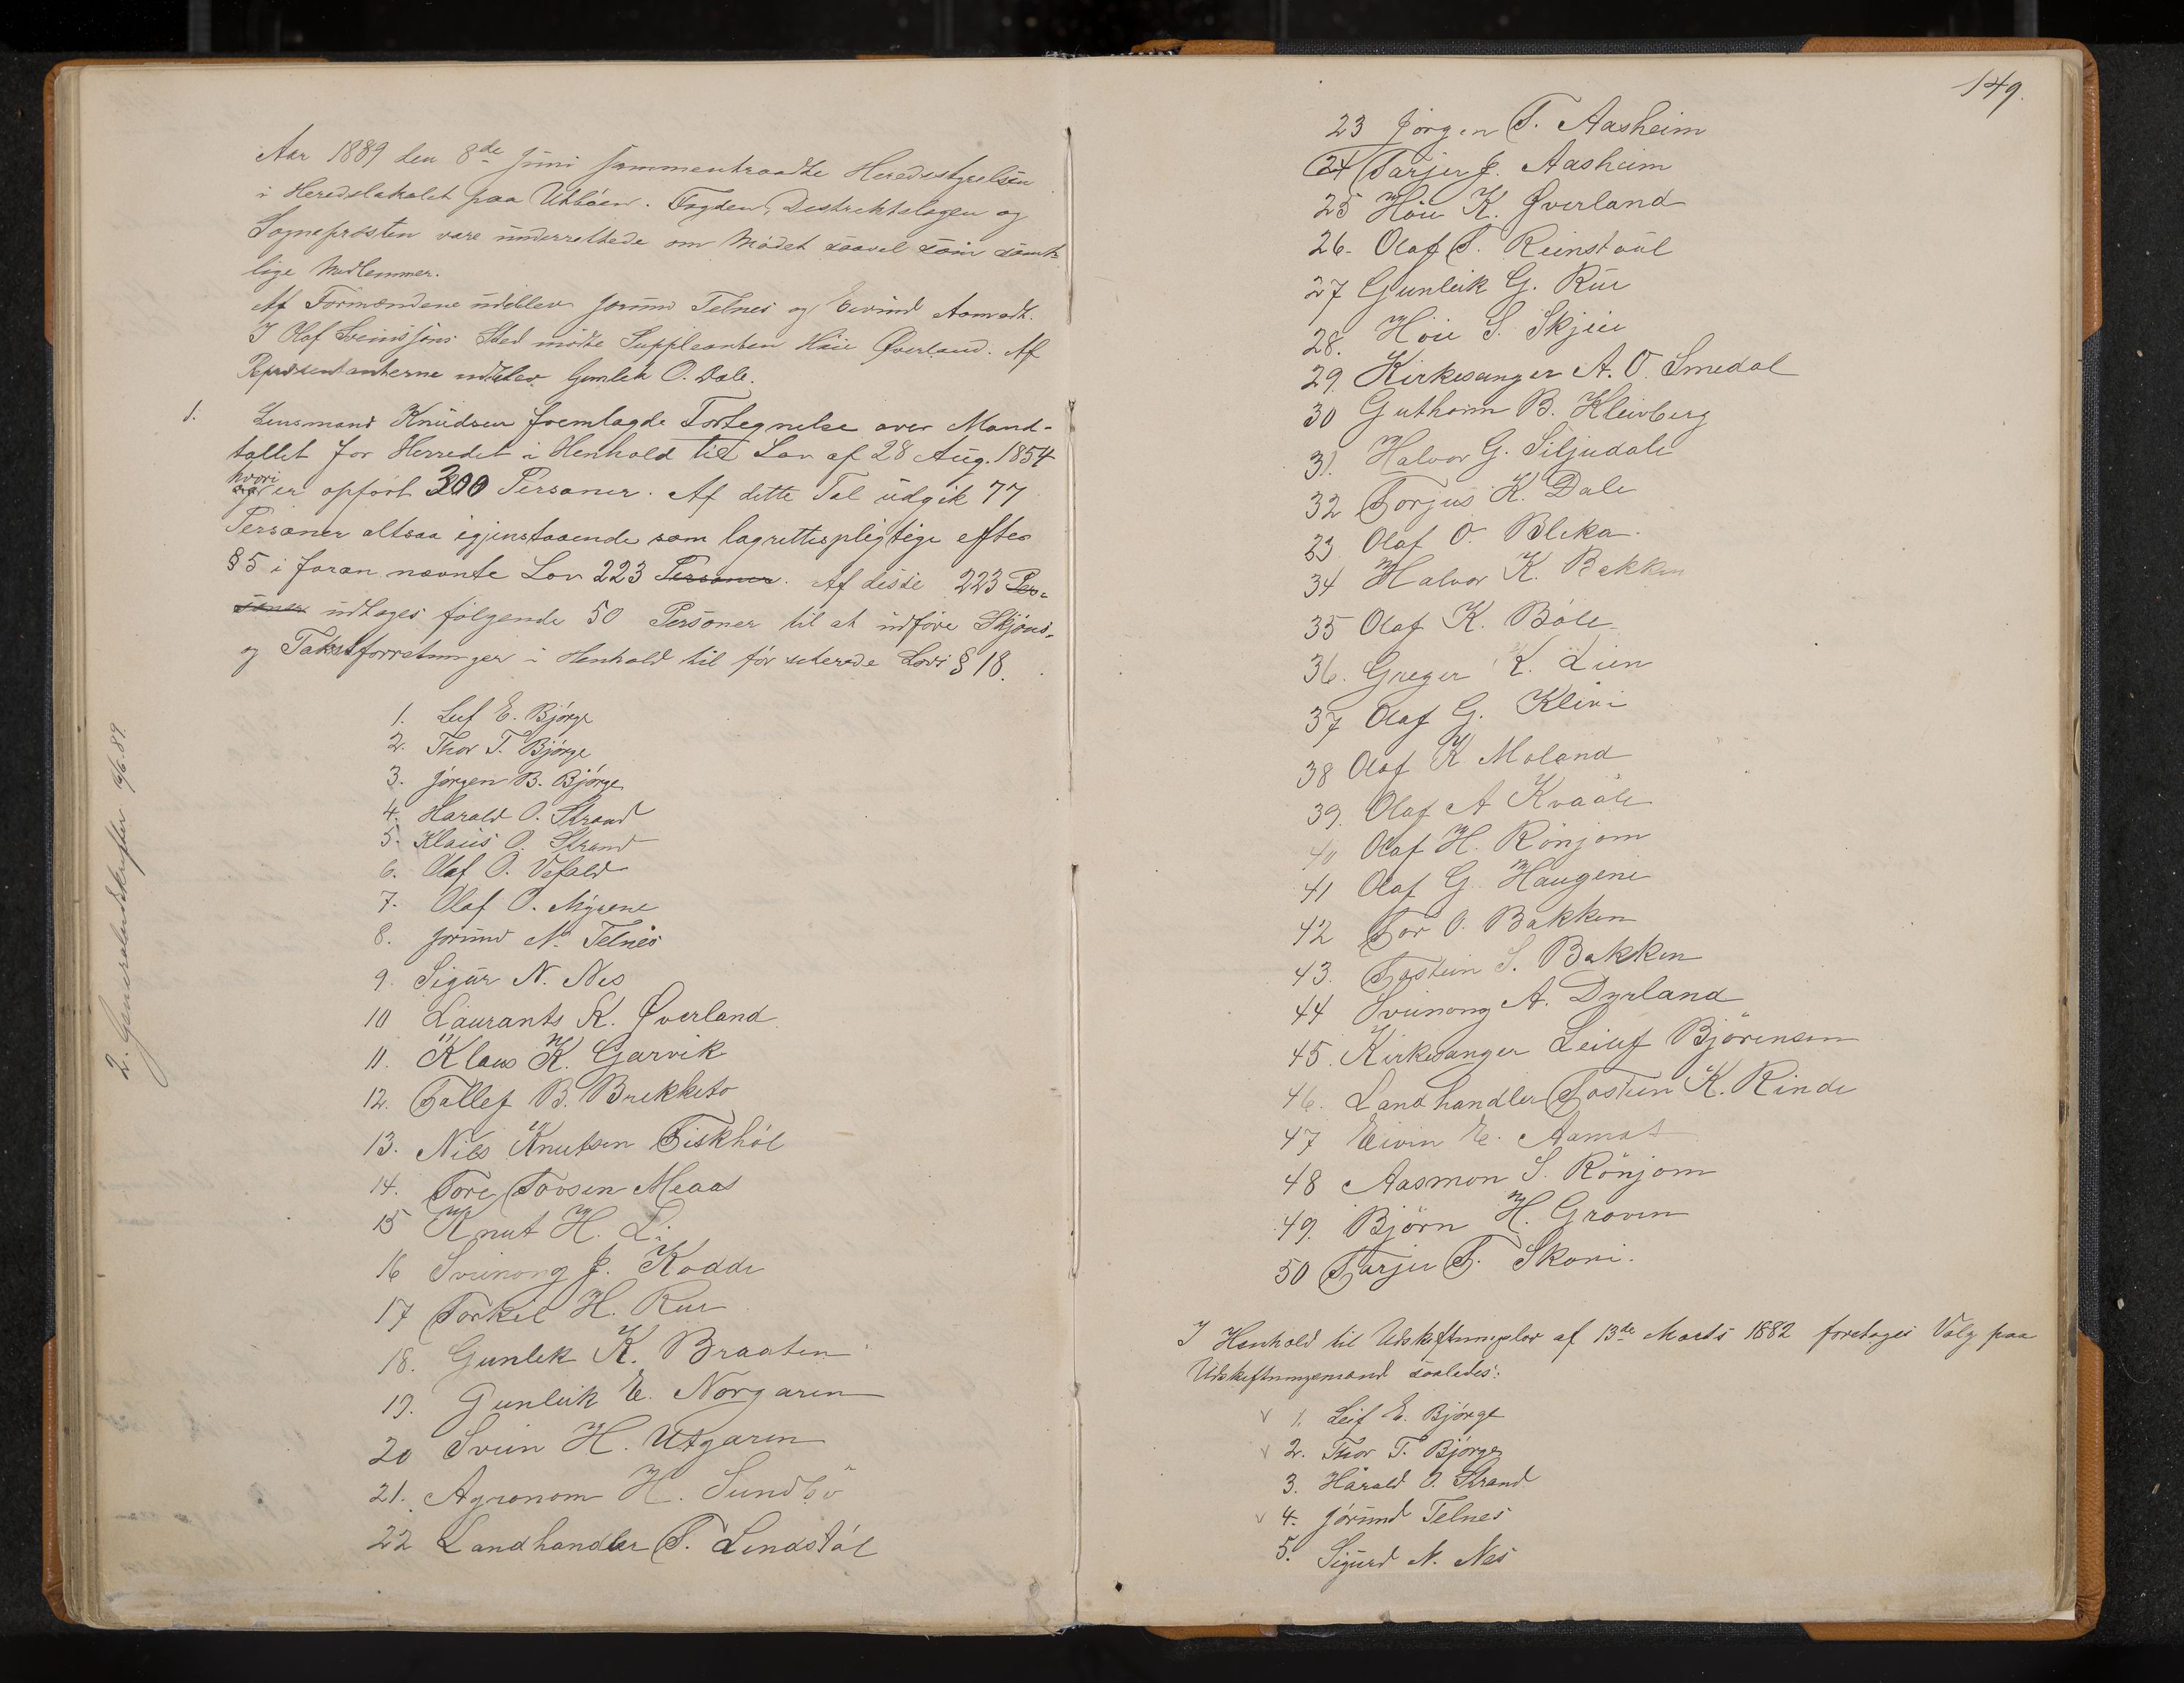 Aar 1889 den 8de Juni sammentraadte Heredsstyrelsen
i Heredslokalet paa Utbøen. Fogden, Destriktslægen og
Sognepræsten vare underrettede om Mødet saavel som samt-
lige Medlemmer.
Af Formændene udeblev Jorund Telnes og Eivind Aamodt.
I Olaf Sveinsjons Sted mødte Suppleanten Høie Øverland. Af
Repræsentanterne udeblev Gunlek O. Dale.
1. Lensmand Knudsen fremlagde Fortegnelse over Mand-
tallet for Herredet i Henhold til Lov af 28 Aug. 1854
hvori er opført 300 Personer. Af dette Tal udgik 77
Personer altsaa igjenstaaende som lagrettespligtige efter
§ 5 i foran nævnte Lov 223 Personer. Af disse 223 Per-
soner udtages følgende 50 Personer til at udføre Skjøns-
og Taxtforretninger i Henhold til før siterede Lovs § 18.
1. Leif E. Bjørge
2. Thor T. Bjørge
3. Jørgen B. Bjørge
4. Harald O. Strand
5. Klaus O. Strand
6. Olaf O. Vefald
7. Olaf O. Myrene
8. Jorund N. Telnes
9. Sigur N. Nes
10 Laurants K. Øverland
11. Klaus K. Garvik
12. Tallef B. Brekketo
13. Nils Knutsen Fiskhøl
14. Tore Tovsen Meaas
15 Knut H. Li
16 Sveinong J. Kodde
17 Torkil H. Rue
18. Gunlek K. Braaten
19. Gunleik E. Norgaren
20 Svein H. Utgaren
21. Agronom H. Sundbö
22 Landhandler T. Lendstøl
2. Generaludskrifter 16/6.89.
149.
23 Jørgen T. Aasheim
24 Tarjer J. Aasheim
25 Höie K. Øverland
26. Olaf T. Reinstaul
27 Gunleik G. Rue
28. Höie S. Skjeie
29. Kirkesanger A. O. Smedal
30 Guthorm B. Kleivberg
31. Halvor G. Siljudale
32 Torjus K. Dale
33 Olaf O. Bleka.
34 Halvor K. Bekken
35 Olaf K. Bøle
36. Greger K. Lien
37 Olaf G. Kleivi
38 Olaf K Moland
39. Olaf A Kvaale
40 Olaf H. Rönjom
41 Olaf G. Haugene
42 Tor O. Bakken
43. Tostein S. Bakken
44 Sveinong A. Dyrland
45. Kirkesanger Leiulf Björensen
46. Landhandler Tostein K. Rinde
47 Eivin E. Aamot
48 Aasmon S. Rönjom
49. Björn H. Groven
50 Tarjer T. Skori.
I Henhold til Udskiftningslov af 13de Marts 1882 foretages Valg paa
Udskiftningsmænd saaledes:
v 1. Leif E. Bjørge
v 2. Thor T. Bjørge
3. Harald O. Strand
v 4. Jorund Telnes
5. Sigurd N. Nes